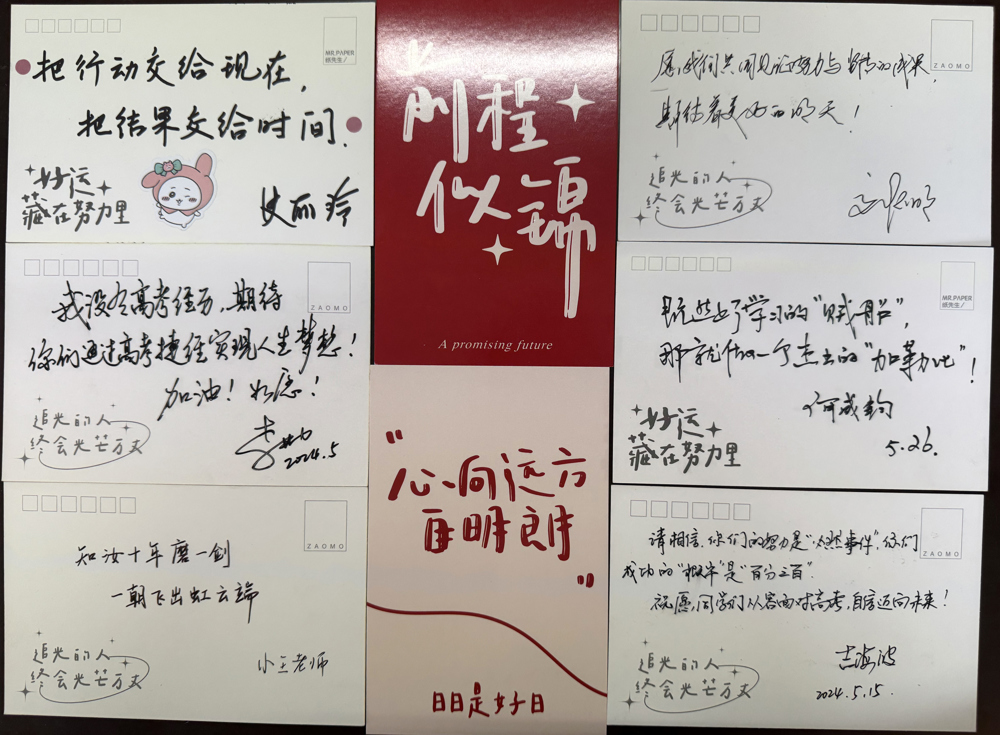 MR.PAPER
纸先生/
把行动交给现在,
把结果交给时间.
好运
藏在努力里
史丽玲
ZAOMO
我没有高考经历,期待
你们通过高考捷径实现人生梦想!
加油!如愿!
2024.5
追光的人
终会光芒万丈
ZAOMO
知汝十年磨一剑
一朝飞出虹云端
追光的人
终会光芒万丈
小王老师
“
前程
似锦
A promising future
“
心向远方
自明朗
”
日日是好日
ZAOMO
愿我们共同见证努力与皆的成果,
期待着更好的明天!
追光的人
终会光芒万丈
MR.PAPER
纸先生/
既然上了学习的“贼船”,
那就做一个杰出的“加勒比”!
何成钧
5.26.
好运
藏在努力里
ZAOMO
请相信,你们的努力是“必然事件”,你们
成功的“概率”是“百分之百”.
祝愿同学们从容面对高考,自信迈向未来!
吉海波
2024.5.15.
追光的人
终会光芒万丈